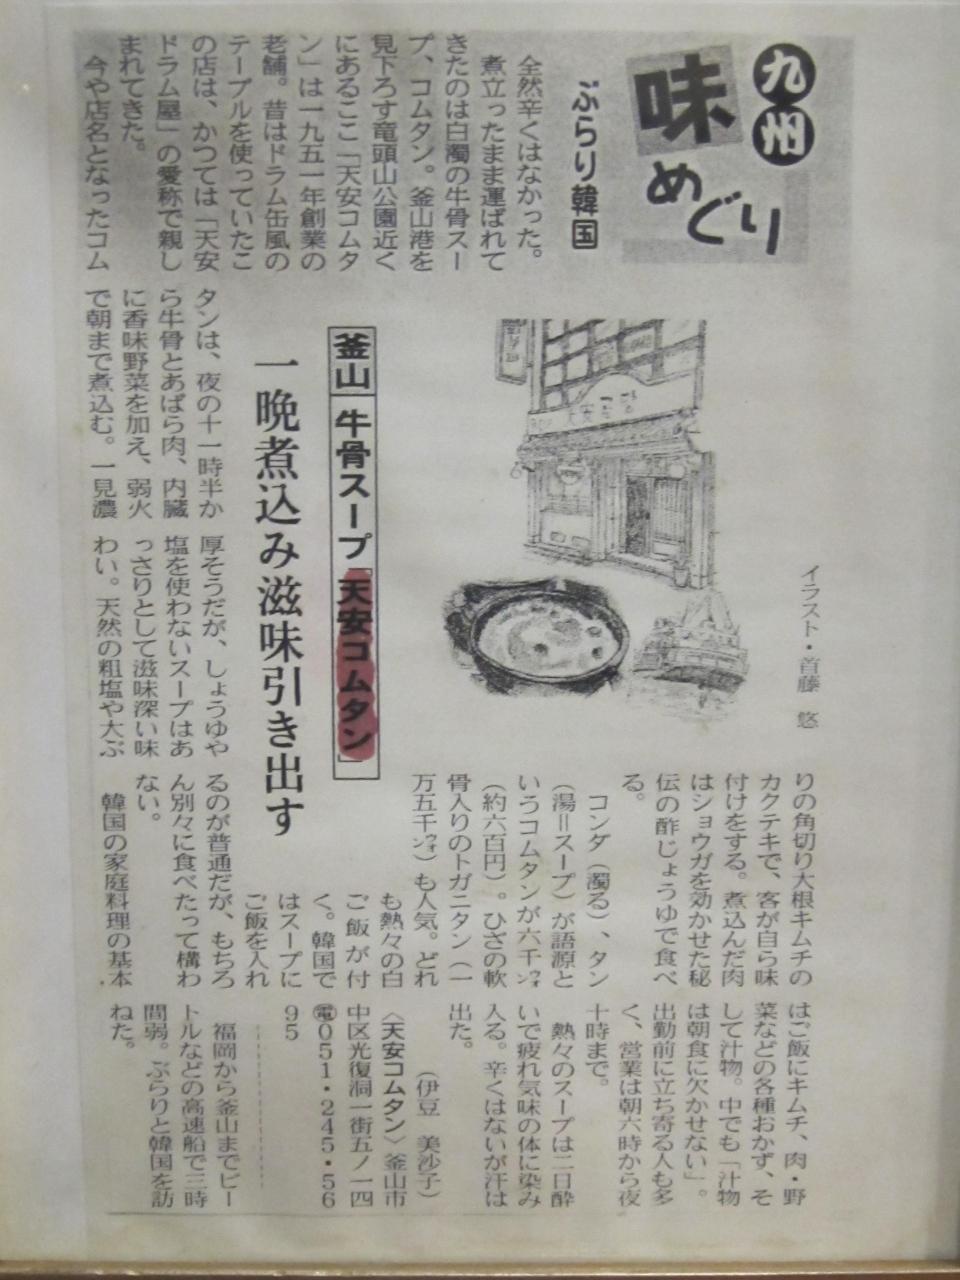 九州
味
めぐり
ぶらり韓国
全然辛くはなかった。
煮立ったまま運ばれて
きたのは白濁の牛骨スー
プ、コムタン。釜山港を
見下ろす竜頭山公園近く
にあるここ「天安コムタ
ン」は一九五一年創業の
老舗。昔はドラム缶風の
テーブルを使っていたこ
の店は、かつては「天安
ドラム屋」の愛称で親し
まれてきた。
今や店名となったコム
タンは、夜の十一時半か
ら牛骨とあばら肉、内臓
に香味野菜を加え、弱火
で朝まで煮込む。一見濃
厚そうだが、しょうゆや
塩を使わないスープはあ
っさりとして滋味深い味
わい。天然の粗塩や大ぶ
釜山
牛骨スープ「天安コムタン」
一晩煮込み滋味引き出す
天安곰탕
イラスト・首藤 悠
りの角切り大根キムチの
カクテキで、客が自ら味
付けをする。煮込んだ肉
はショウガを効かせた秘
伝の酢じょうゆで食べ
る。
コンダ（濁る）、タン
（湯＝スープ）が語源と
いうコムタンが六千㌆
（約六百円）。ひざの軟
骨入りのトガニタン（一
万五千㌆）も人気。どれ
も熱々の白
ご飯が付
く。韓国で
はスープに
ご飯を入れ
るのが普通だが、もちろ
ん別々に食べたって構わ
ない。
韓国の家庭料理の基本
はご飯にキムチ、肉・野
菜などの各種おかず、そ
して汁物。中でも「汁物
は朝食に欠かせない」。
出勤前に立ち寄る人も多
く、営業は朝六時から夜
十時まで。
熱々のスープは二日酔
いで疲れ気味の体に染み
入る。辛くはないが汗は
出た。
（伊豆 美沙子）
〈天安コムタン〉釜山市
中区光復洞一街五ノ一四
電051・245・56
95
福岡から釜山までビー
トルなどの高速船で三時
間弱。ぶらりと韓国を訪
ねた。